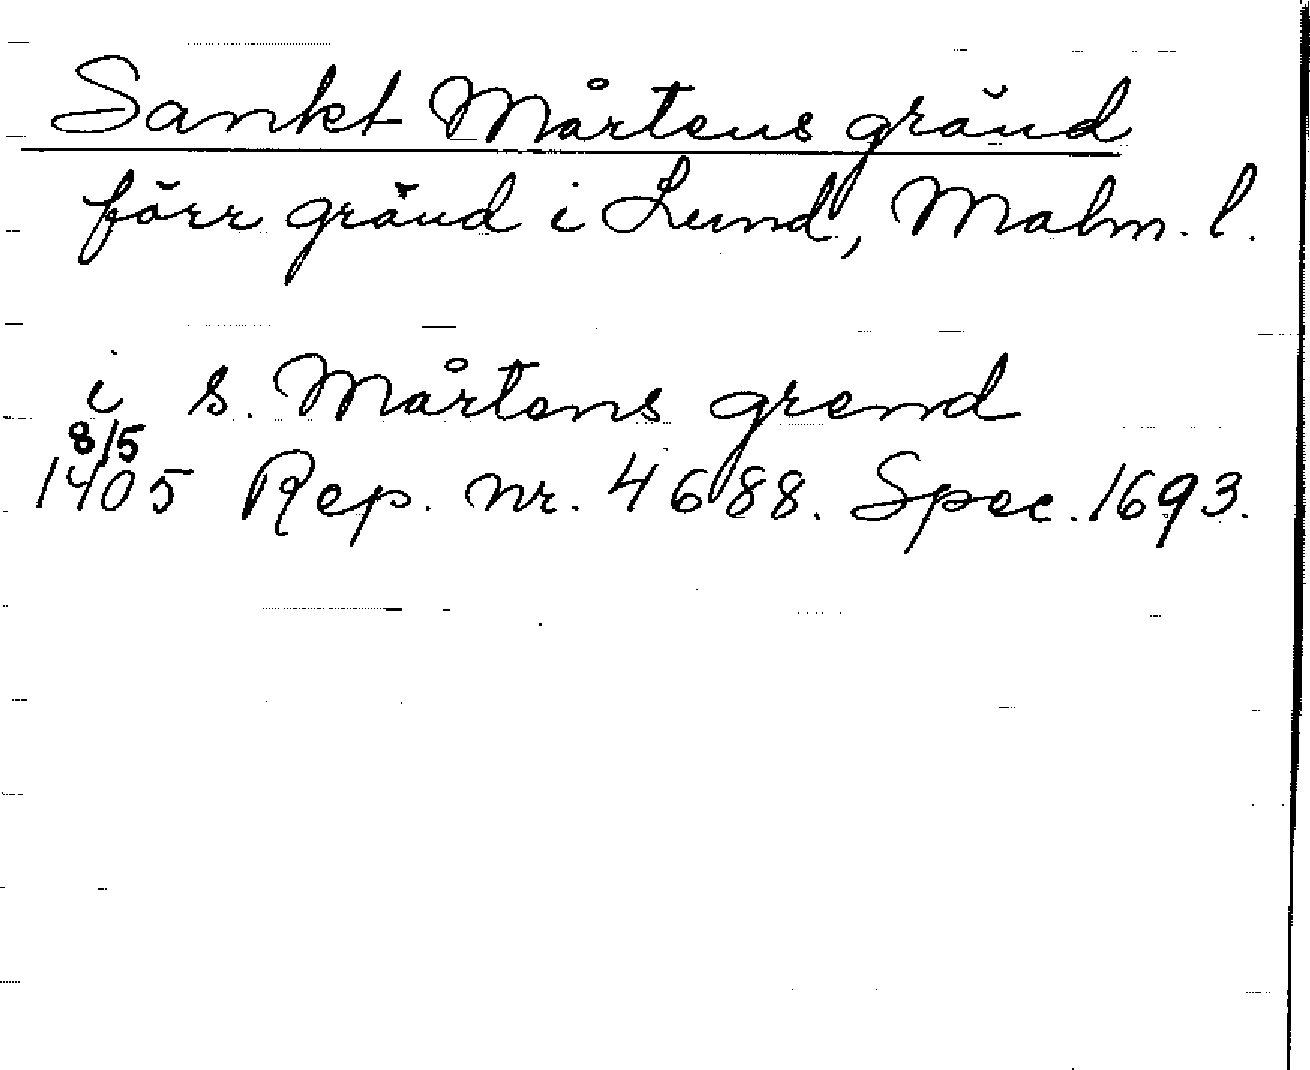 Sankt Mårtens gränd
förr gränd i Lund, Malm. l.
i s. Mårtens grend
8/5
1405 Rep. nr. 4688. Spec. 1693.